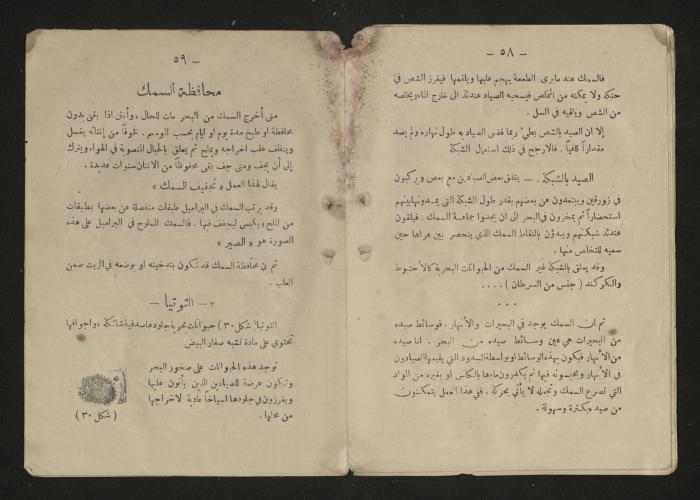 — ٥٨ —
فالسمك عند ما يرى الطعمة يهجم عليها ويلقمها فيغرز الشص في
حنكه ولا يمكنه من التملص فيسحبه الصياد عندئذ الى خارج الماء ويخلصه
من الشص ويلقيه في السل .
إلا ان الصيد بالشص بطيء ربما قضى الصياد به طول نهاره ولم يصد
مقداراً كافياً . فالارجح في ذلك استعمال الشبكة
الصيد بالشبكة . — يتفق بعض الصيادين مع بعض ويركبون
في زورقين ويبتعدون عن بعضهم بقدر طول الشبكة التي يمسكونها بيديهم
استحضاراً ثم يمخرون في البحر الى ان يجدوا جماعة السمك . فيلقون
عندئذ شبكتهم ويبدؤن بالتقاط السمك الذي ينحصر بين عراها حين
سعيه للتخلص منها .
وقد يعلق بالشبكة غير السمك من الحيوانات البحرية كالأخطبوط
والكركند ( جنس من السرطان ) ....
...
ثم ان السمك يوجد في البحيرات والأنهار . فوسائط صيده
من البحيرات هي عين وسائط صيده من البحر . اما صيده
من الأنهار فيكون بهذه الوسائط او بواسطة السدود التي يقيمها الصيادون
في الأنهار ويحبسونه فيها ثم يكدرون ماءها بالكلس او بغيره من المواد
التي تصرع السمك وتجعله لا يأتي بحركة . ففي هذا العمل يتمكنون
من صيده بكثرة وسهولة .
— ٥٩ —
محافظة السمك
متى أخرج السمك من البحر مات للحال ، وأنتن اذا بقي بدون
محافظة او طبخ مدة يوم او ايام بحسب الموسم . فخوفاً من إنتانه يغسل
وينظف عقب اخراجه ويملح ثم يعلق بالحبال المنصوبة في الهواء ويترك
إلى أن يجف ومتى جف بقي محفوظاً من الانتان سنوات عديدة .
يقال لهذا العمل « تجفيف السمك »
وقد يرتب السمك في البراميل طبقات منفصلة عن بعضها بطبقات
من الملح ويكبس ليجفف فيها . فالسمك المملوح في البراميل على هذه
الصورة هو « الصير »
ثم ان محافظة السمك قد تكون بتدخينه او بوضعه في الزيت ضمن
العلب .
٣ — التوتيا —
التوتيا ( شكل ٣٠ ) حيوانات بحرية جلودها صدفية شائكة ، واجوافها
تحتوي على مادة تشبه صفار البيض
توجد هذه الحيوانات على صخور البحر
وتكون عرضة للصيادين الذين يأتون عليها
ويغرزون في جلودها اسياخاً عادية لاخراجها
من محلها .
( شكل ٣٠ )